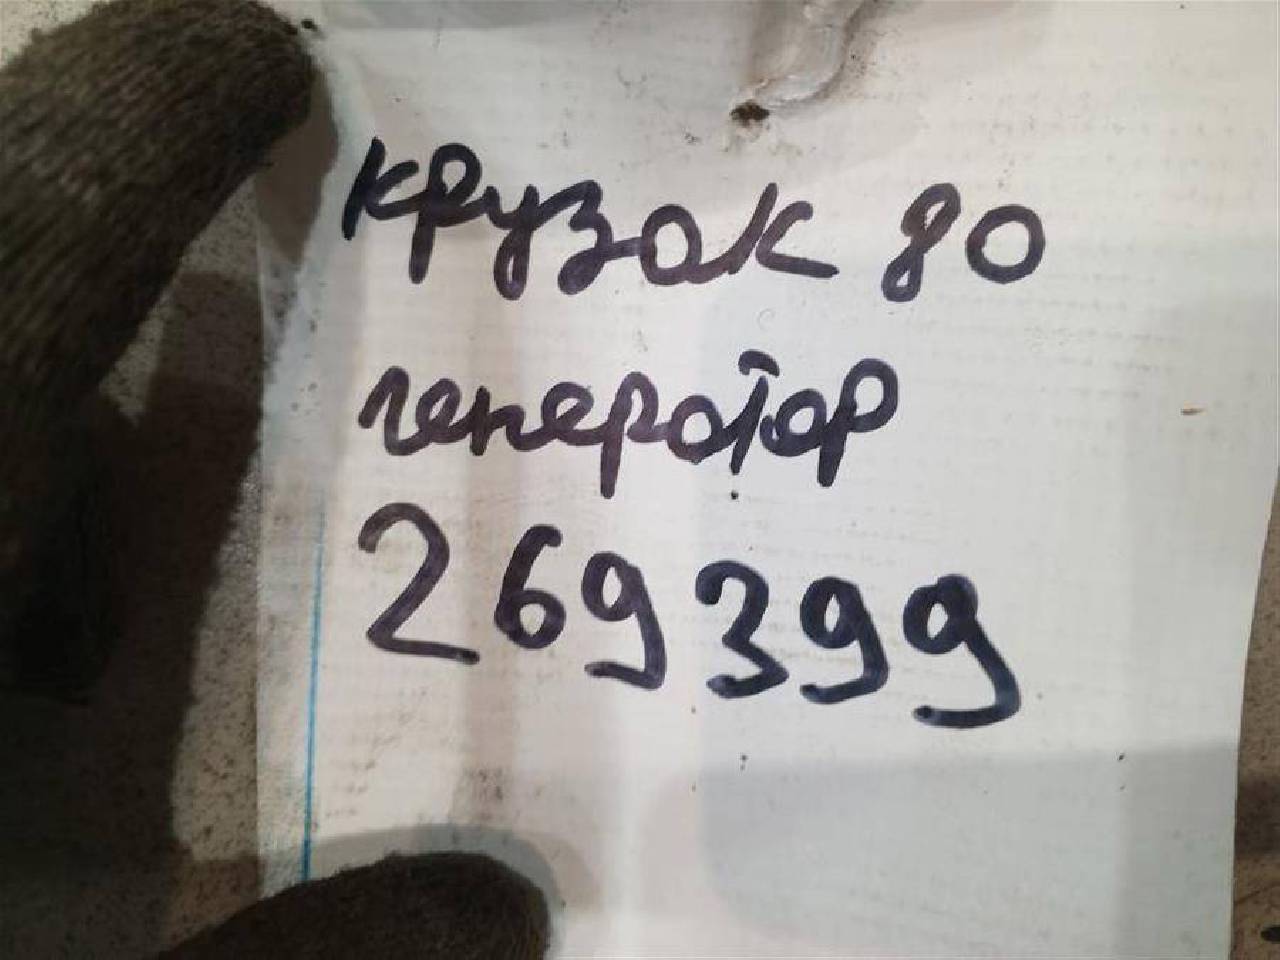 крузак 80
генератор
269399